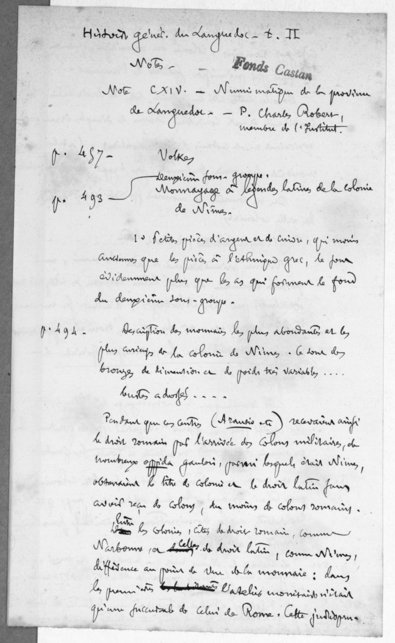 Histoire génér. du Languedoc - t. II
Notes - -
Fonds Castan
Note CXIV. - Numismatique de la province
de Languedoc. - P. Charles Robert,
membre de l'Institut.
p. 457 - Volkes
Deuxième sous-groupe.
p. 493 - Monnayage à légendes latines de la colonie
de Nîmes.
1o Petites pièces d'argent et de cuivre, qui moins
anciennes que les pièces à l'ethnique grec, le sont
évidemment plus que les as qui forment le fond
du deuxième sous-groupe.
p. 494 - Description des monnaies les plus abondantes et les
plus curieuses de la colonie de Nîmes. Ce sont des
bronzes de dimension et de poids très variables ....
bustes adossés ....
Pendant que ces centres (Arausio etc) recevaient ainsi
le droit romain par l'arrivée des colons militaires, de
nombreux oppida gaulois, parmi lesquels était Nîmes,
obtenaient le titre de colonie et le droit latin sans
avoir reçu de colons, du moins de colons romains.
Entre les colonies, cités de droit romain, comme
Narbonne, et celles de droit latin, comme Nîmes,
différence au point de vue de la monnaie : dans
les premières l'atelier monétaire n'était
qu'une succursale de celui de Rome. Cette